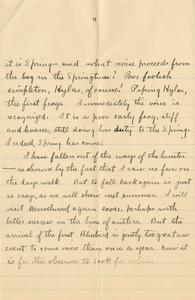 4
it is Spring - and what noise proceeds from
the bog in the Springtime? Poor foolish
simpleton, Hylas, of course! Piping Hylas,
the first frogs. Immediately the voice is
recognized. It is a poor early frog, stiff
and hoarse, still doing his duty to the Spring.
Indeed, Spring has come.
I have fallen out of the ways of the hunter
- as shown by the fact that I saw no fur on
the days walk. But to fall back again is just
as easy, as will show next summer. I will
visit again soon, perhaps with
better success in the line of But the
arrival of the first Bluebird is justly too great an
event to come more than once a year. Now it
is for the observer to look for